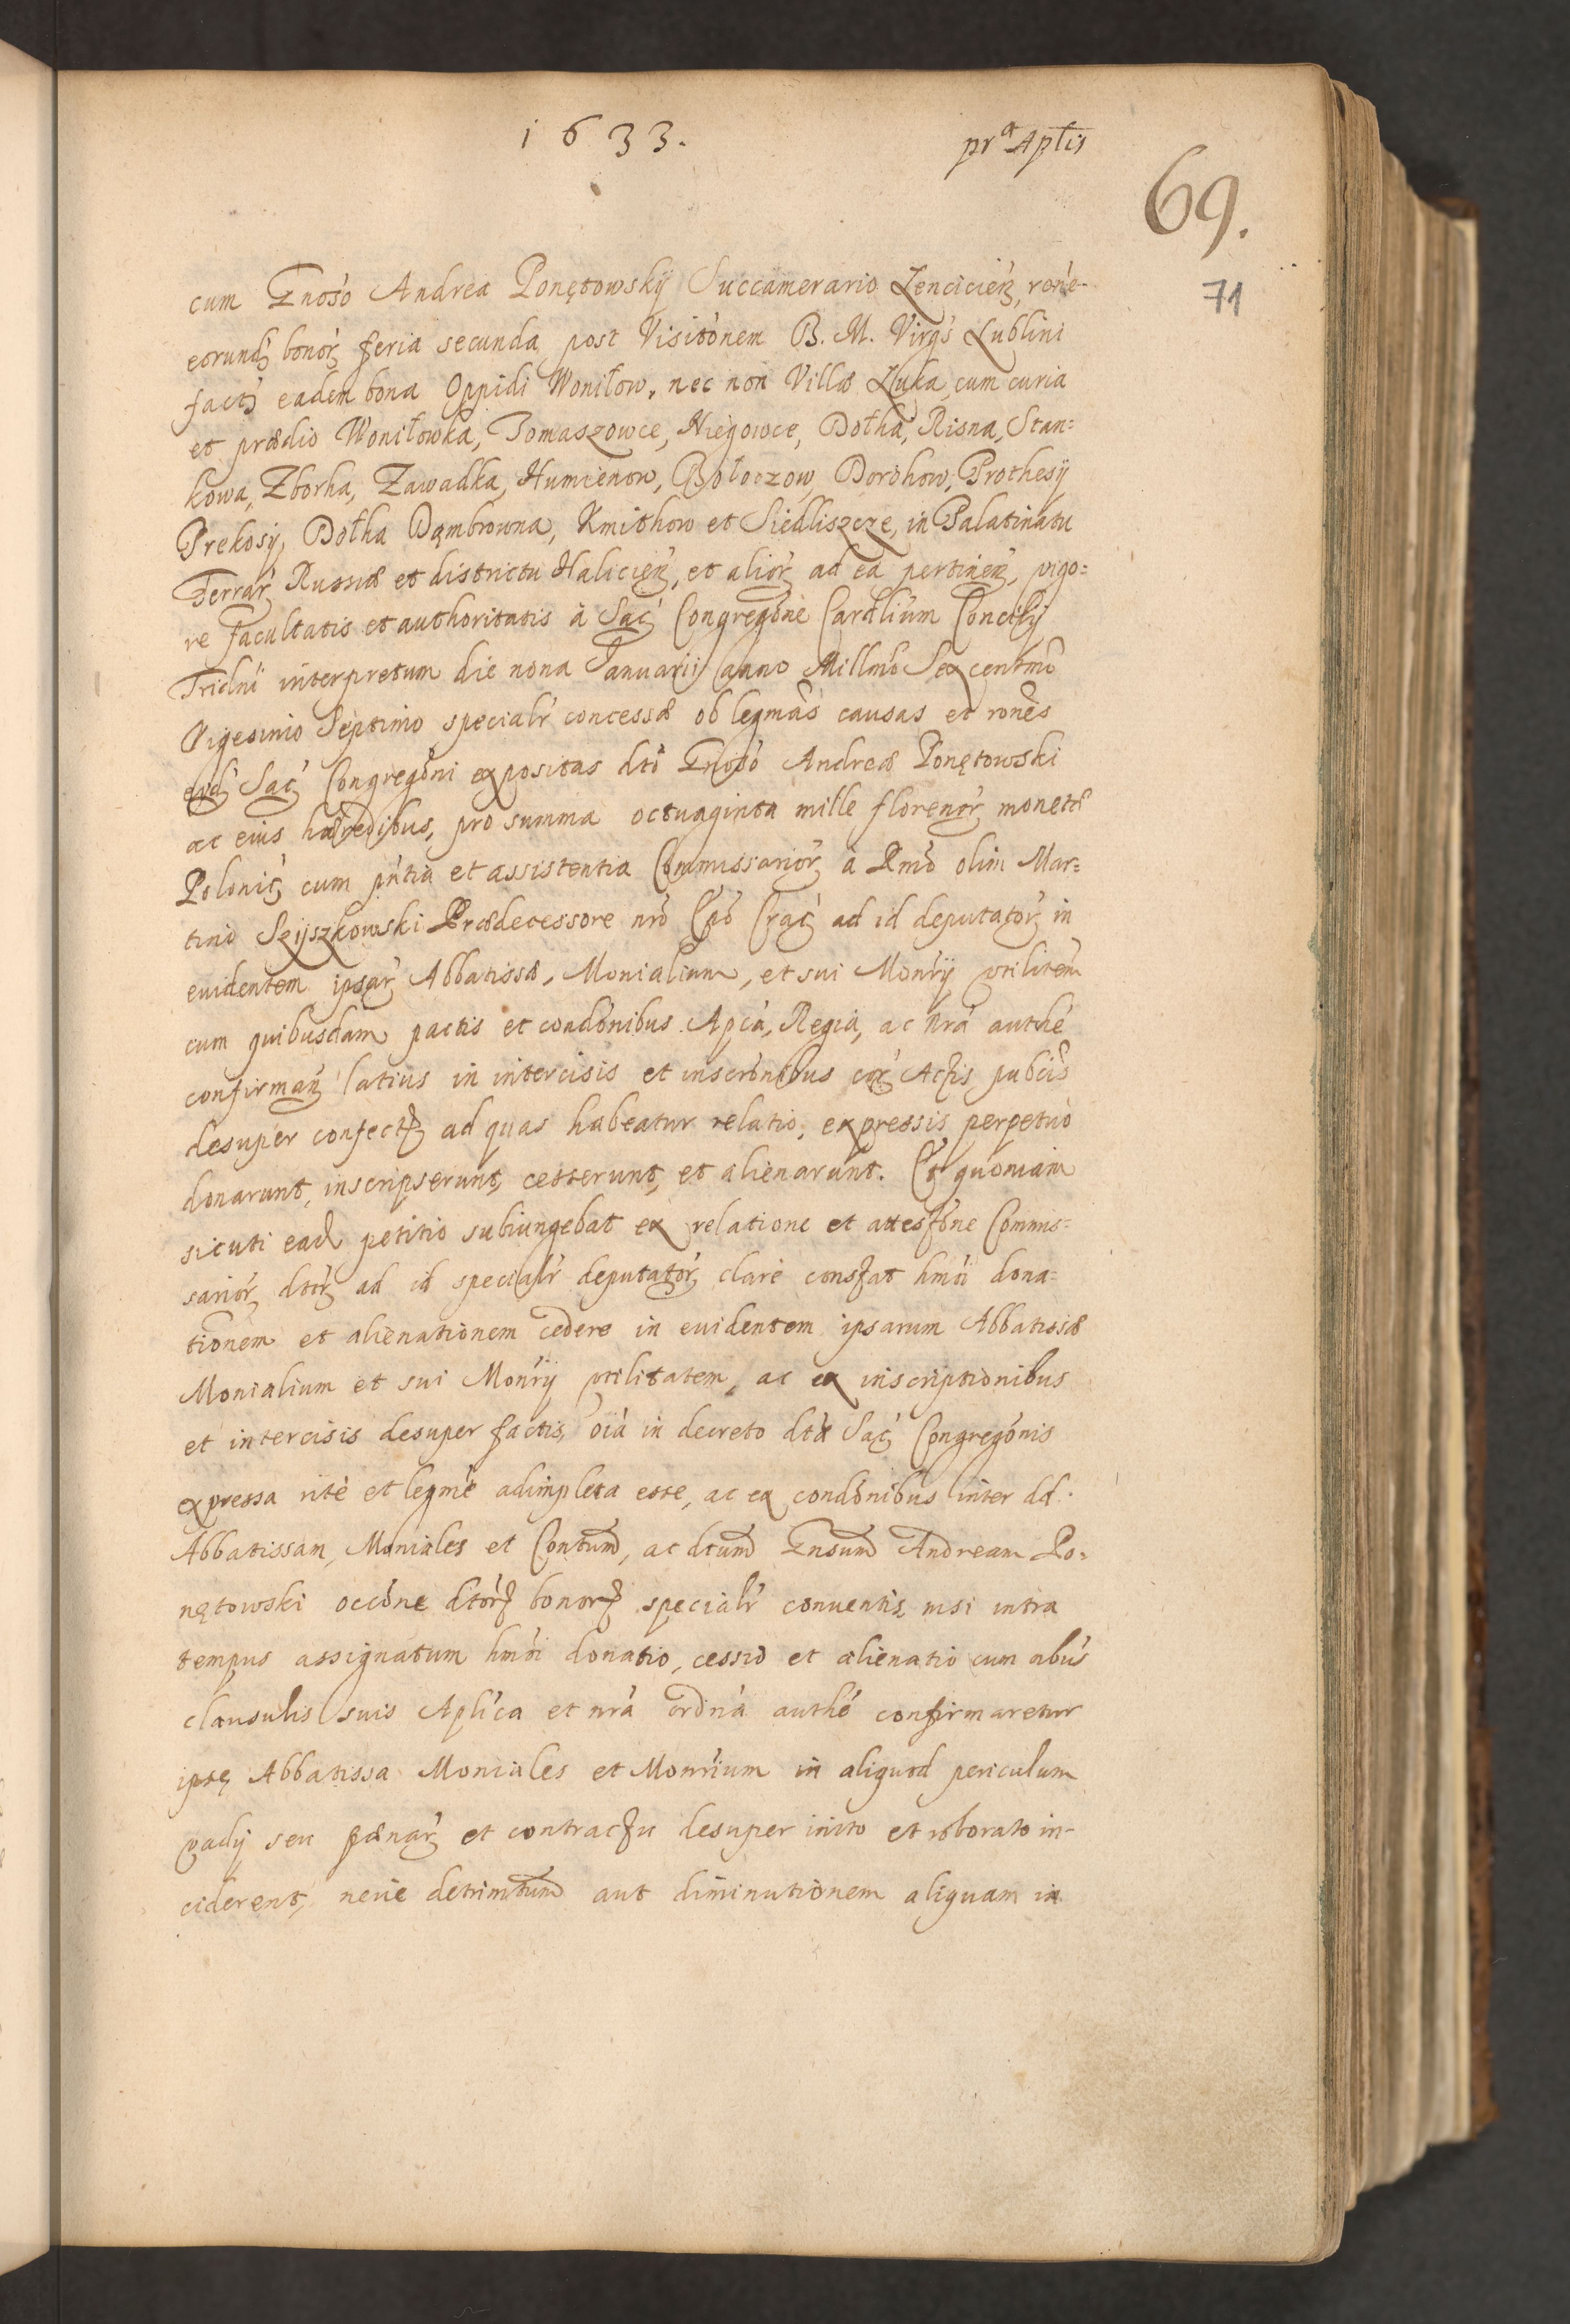 1633. prª Aplis
69.
71
cum Gnoso Andrea Ponętowskÿ Succamerario Lencicieñ, rone
eorund bonor feria secunda post Visitonem B. M. Virgs Lublini
fact eadem bona Oppidi Woniłow, nec non Villæ Łuka cum curia
et prædio Woniłowka, Tomaszowce, Niegowce, Dołha, Risna, Stan=
kowa, Zborha, Zawadka, Humienow, Bołoczow, Dorohow, Prothesÿ
Prekosÿ, Dołha Dąmbrowna, Kmithow et Siedliszcze, in Palatinatu
Terrar Russiæ et districtu Halicien, et alior ad ea pertinen, vigo=
re facultatis et authoritatis à Sac Congregone Cardlium Concilÿ
Tridni interpretum die nona Januarii anno Millmo Sexcentmo
Vigesimo Septimo specialr concessæ ob legmas causas et rones
eid Sac Congregoni expositas dto Gnoso Andreæ Ponętowski
ac eius hæredibus, pro summa octuaginta mille florenor monetæ
Polonic cum pntia et assistentia Commissarior à Rmo olim Mar=
tino Szÿszkowski Prædecessore nro Epo Crac ad id deputator in
euidentem ipsar Abbatissæ, Monialium, et sui Monrÿ vtilitem
cum quibusdam pactis et condonibus Apca, Regia, ac nra authe
confirman latius in intercisis et inscronibus cor Actis pubcis
desuper confect ad quas habeatur relatio, expressis perpetuo
donarunt, inscripserunt, cesserunt, et alienarunt. Et quoniam
sicuti ead petitio subiungebat ex relatione et attestone Commis=
sarior dtor ad id specialr deputator clarè constat hmoi dona=
tionem et alienationem cedere in euidentem ipsarum Abbatissæ
Monialium et sui Monrÿ vtilitatem, ac ex inscriptionibus
et intercisis desuper factis, oia in decreto dtæ Sac Congregonis
expressa ritè et legmè adimpleta esse, ac ex condonibus inter dd.
Abbatissam, Moniales et Contum, ac dtum Gnsum Andream Po=
nętowski occone dtor bonor specialr conuentis nisi intra
tempus assignatum hmoi donatio, cessio et alienatio cum oibus
clausulis suis Aplica et nra ordna authe confirmaretur
ipsę Abbatissa Moniales et Monrium in aliquod periculum
vadÿ seu pænar et contractu desuper inito et roborato in-
ciderent, neue detrimtum aut diminutionem aliquam in